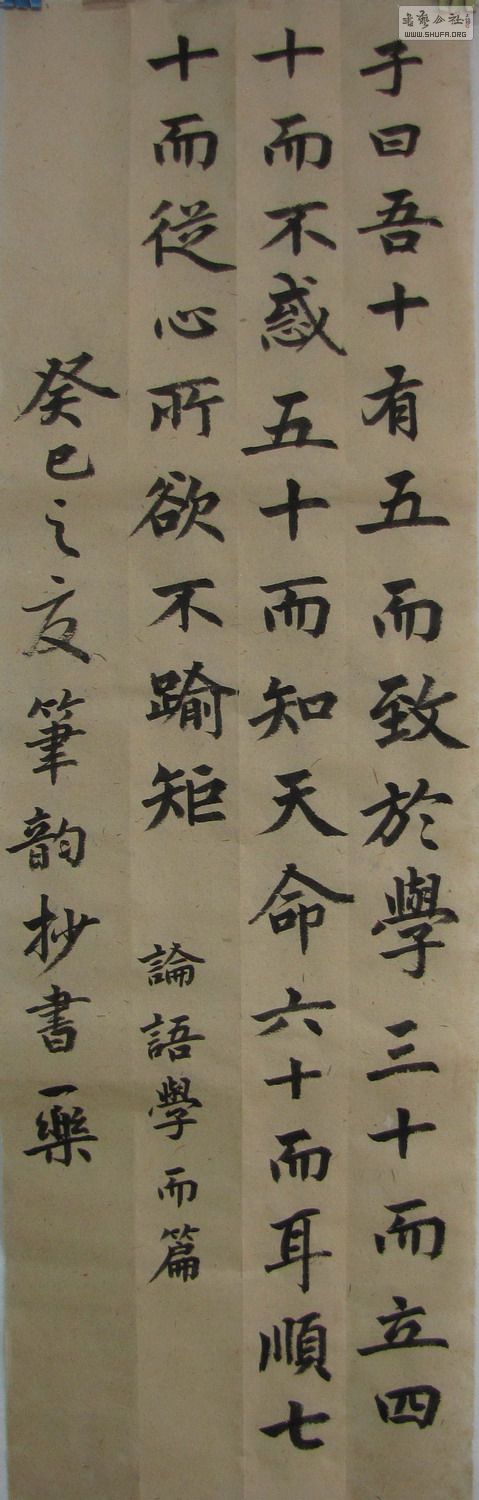 子曰吾十有五而致於學三十而立四
十而不惑五十而知天命六十而耳順七
十而從心所欲不踰矩 論語學而篇
癸巳之夏筆韵抄書一樂
WWW.SHUFA.ORG